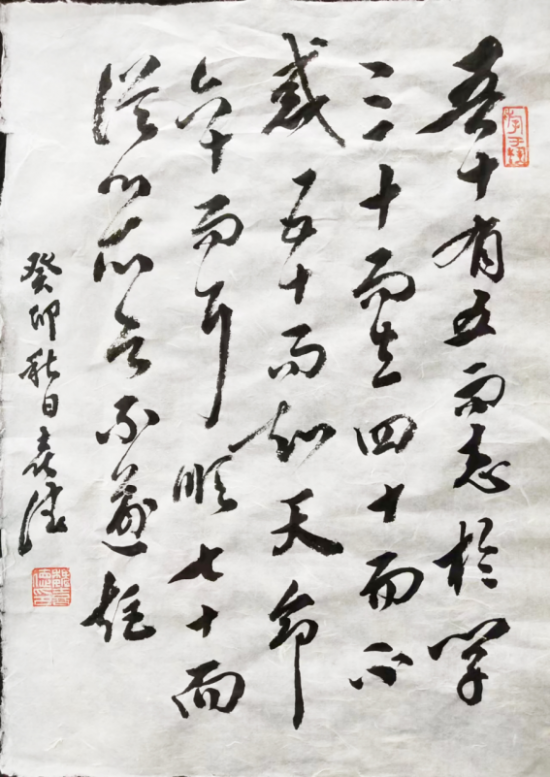 吾十有五而志於学
三十而立四十而不
惑五十而知天命
六十而耳順七十而
從心所欲不逾矩
癸卯秋日